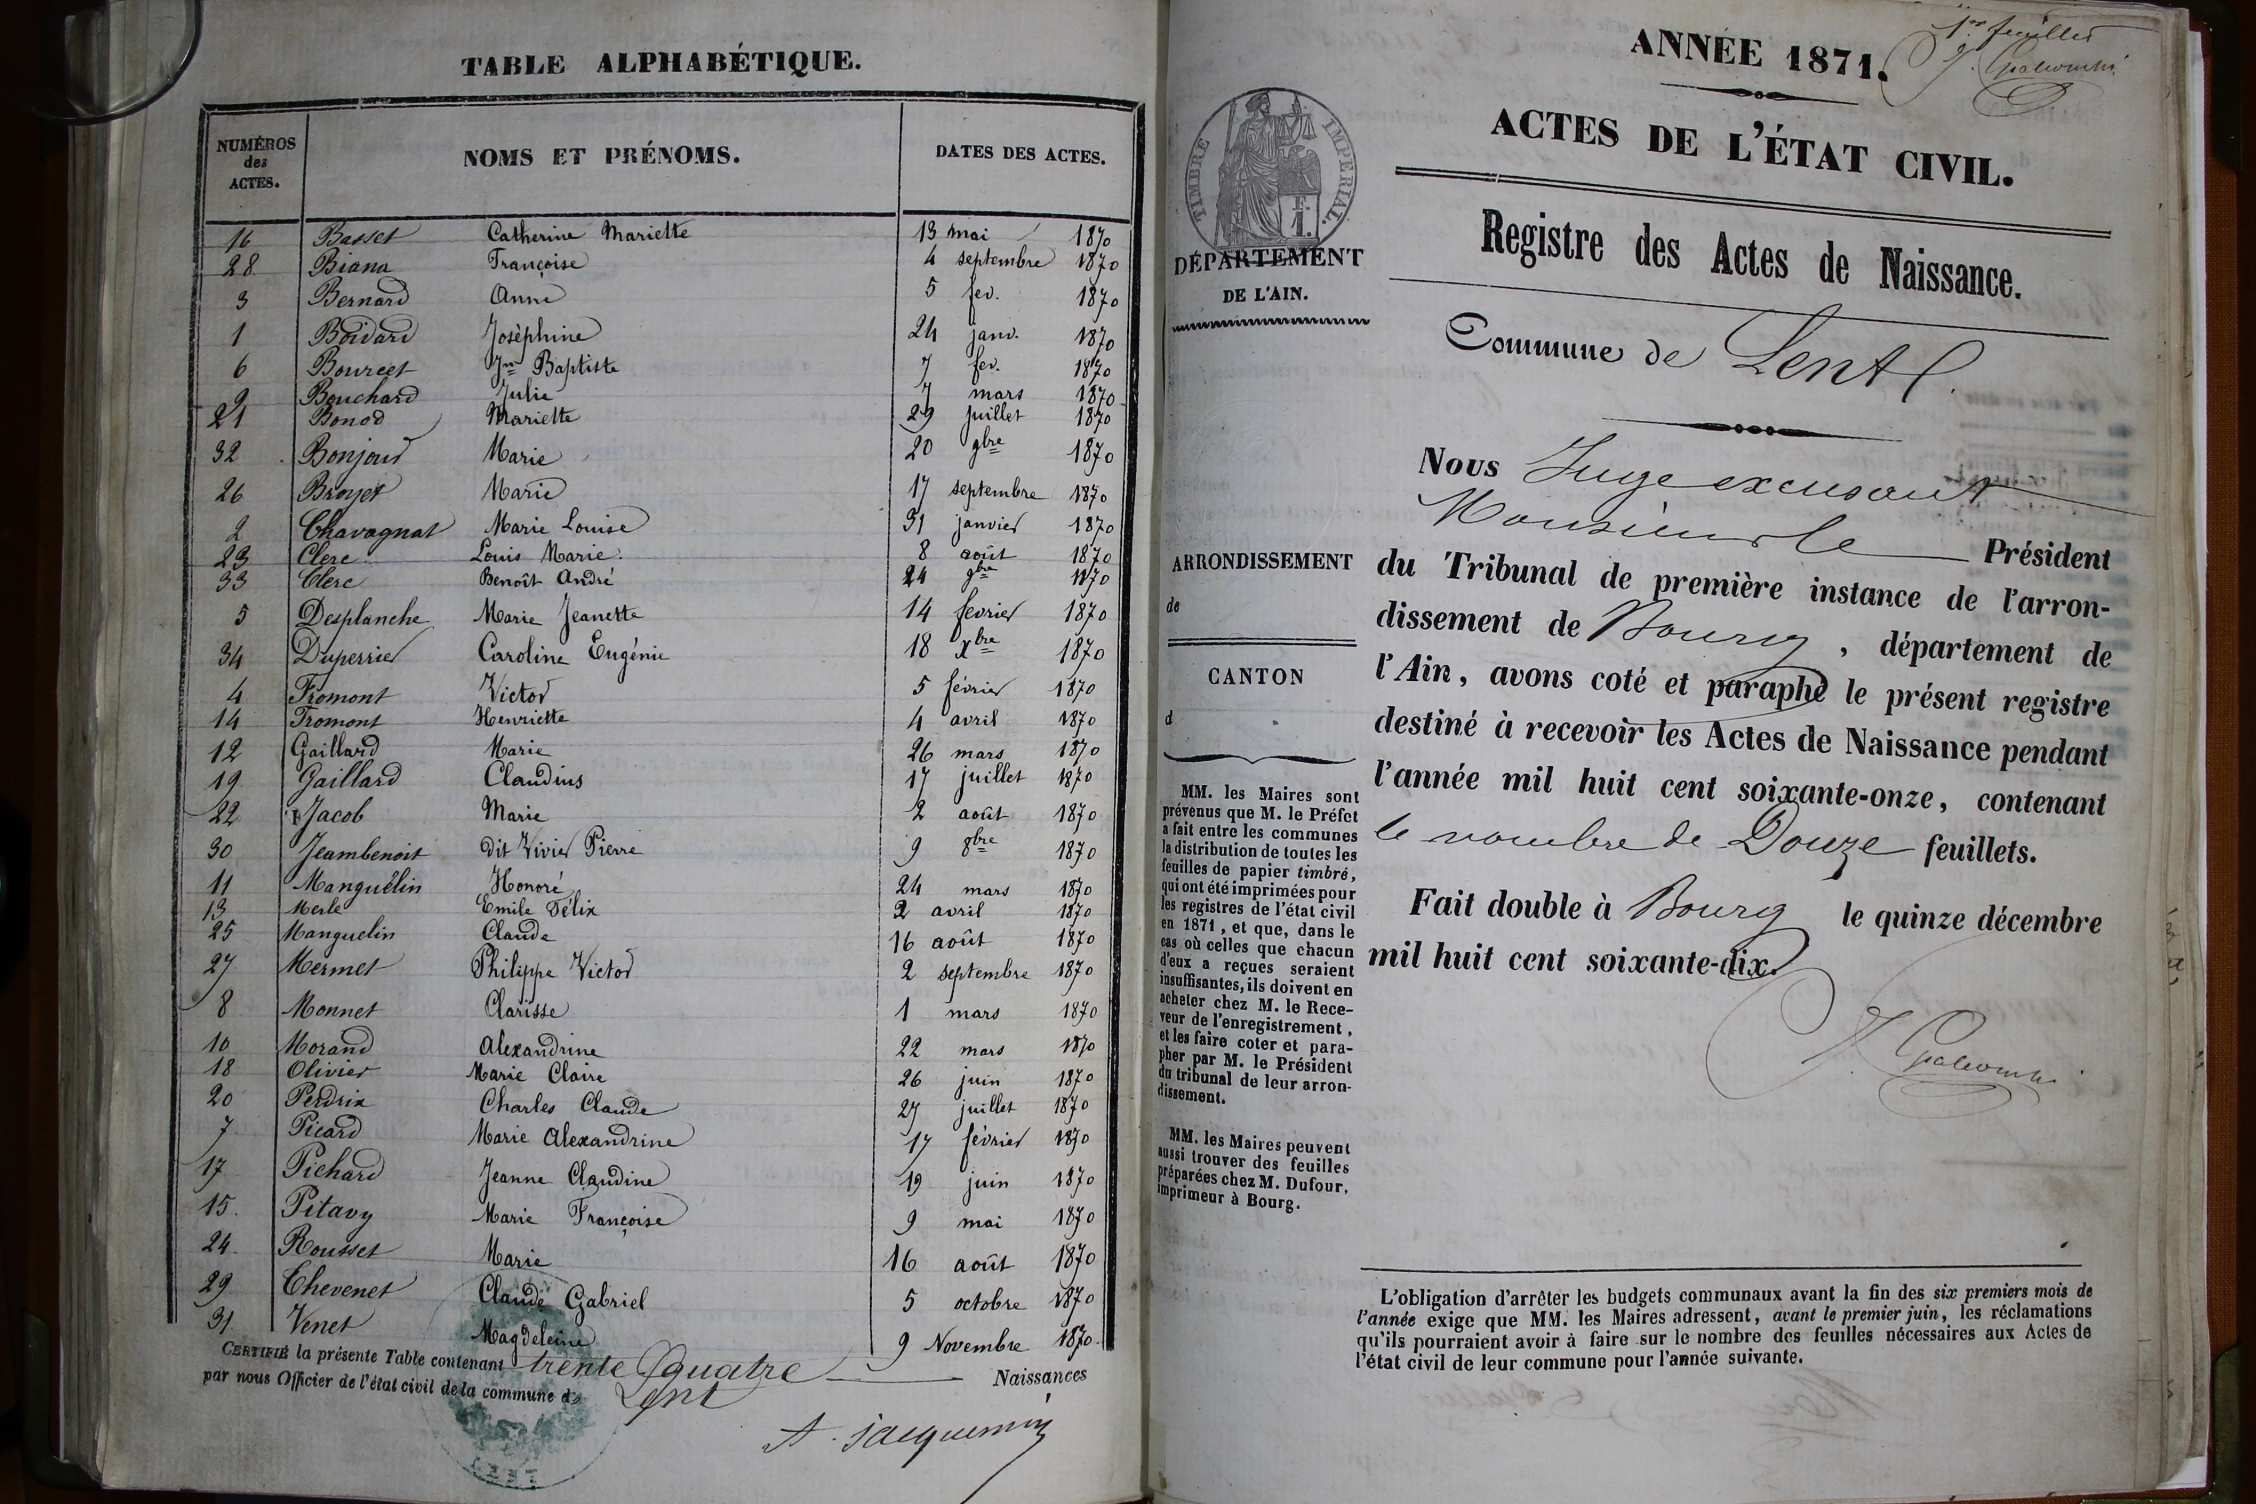 TABLE ALPHABÉTIQUE.
NUMÉROS des ACTES. NOMS ET PRÉNOMS. DATES DES ACTES.
16 Basset Catherine Mariette 13 mai 1870
28 Biana Françoise 4 septembre 1870
3 Bernard Anne 5 fev. 1870
1 Boidard Josèphine 24 janv. 1870
6 Bourcet Jn Baptiste 7 fev. 1870
9 Bouchard Julie 7 mars 1870
21 Bonod Mariette 29 juillet 1870
32 Bonjour Marie 20 9bre 1870
26 Broyer Marie 17 septembre 1870
2 Chavagnat Marie Louise 31 janvier 1870
23 Clerc Louis Marie 8 août 1870
33 Clerc Benoît André 24 9bre 1870
5 Desplanche Marie Jeanette 14 fevrier 1870
34 Duperrier Caroline Eugénie 18 xbre 1870
4 Fromont Victor 5 février 1870
14 Fromont Henriette 4 avril 1870
12 Gaillard Marie 26 mars 1870
19 Gaillard Claudius 17 juillet 1870
22 Jacob Marie 2 août 1870
30 Jeambenoit dit Vivier Pierre 9 8bre 1870
11 Manguelin Honoré 24 mars 1870
13 Merle Emile Félix 2 avril 1870
25 Manguelin Claude 16 août 1870
27 Mermet Philippe Victor 2 septembre 1870
8 Monnet Clarisse 1 mars 1870
10 Morand Alexandrine 22 mars 1870
18 Olivier Marie Claire 26 juin 1870
20 Perdrix Charles Claude 27 juillet 1870
7 Picard Marie Alexandrine 17 février 1870
17 Pichard Jeanne Claudine 19 juin 1870
15. Pitavy Marie Françoise 9 mai 1870
24 Rousset Marie 16 août 1870
29 Chevenet Claude Gabriel 5 octobre 1870
31 Venet Magdeleine 9 Novembre 1870
CERTIFIÉ la présente Table contenant trente quatre Naissances
par nous Officier de l'état civil de la commune de Lent
A. Jacquemin
LENT
1er feuillet
ANNÉE 1871.
ACTES DE L'ÉTAT CIVIL.
TIMBRE IMPERIAL.
F. 1.
DÉPARTEMENT
DE L'AIN.
Registre des Actes de Naissance.
Commune de Lent
Nous Juge excusant
Monsieur le Président
ARRONDISSEMENT
de
CANTON
d
du Tribunal de première instance de l'arron-
dissement de Bourg, département de
l'Ain, avons coté et paraphé le présent registre
destiné à recevoir les Actes de Naissance pendant
l'année mil huit cent soixante-onze, contenant
le nombre de Douze feuillets.
Fait double à Bourg le quinze décembre
mil huit cent soixante-dix.
MM. les Maires sont
prévenus que M. le Préfet
a fait entre les communes
la distribution de toutes les
feuilles de papier timbré,
qui ont été imprimées pour
les registres de l'état civil
en 1871, et que, dans le
cas où celles que chacun
d'eux a reçues seraient
insuffisantes, ils doivent en
acheter chez M. le Rece-
veur de l'enregistrement,
et les faire coter et para-
pher par M. le Président
du tribunal de leur arron-
dissement.
MM. les Maires peuvent
aussi trouver des feuilles
préparées chez M. Dufour,
imprimeur à Bourg.
L'obligation d'arrêter les budgets communaux avant la fin des six premiers mois de
l'année exige que MM. les Maires adressent, avant le premier juin, les réclamations
qu'ils pourraient avoir à faire sur le nombre des feuilles nécessaires aux Actes de
l'état civil de leur commune pour l'année suivante.